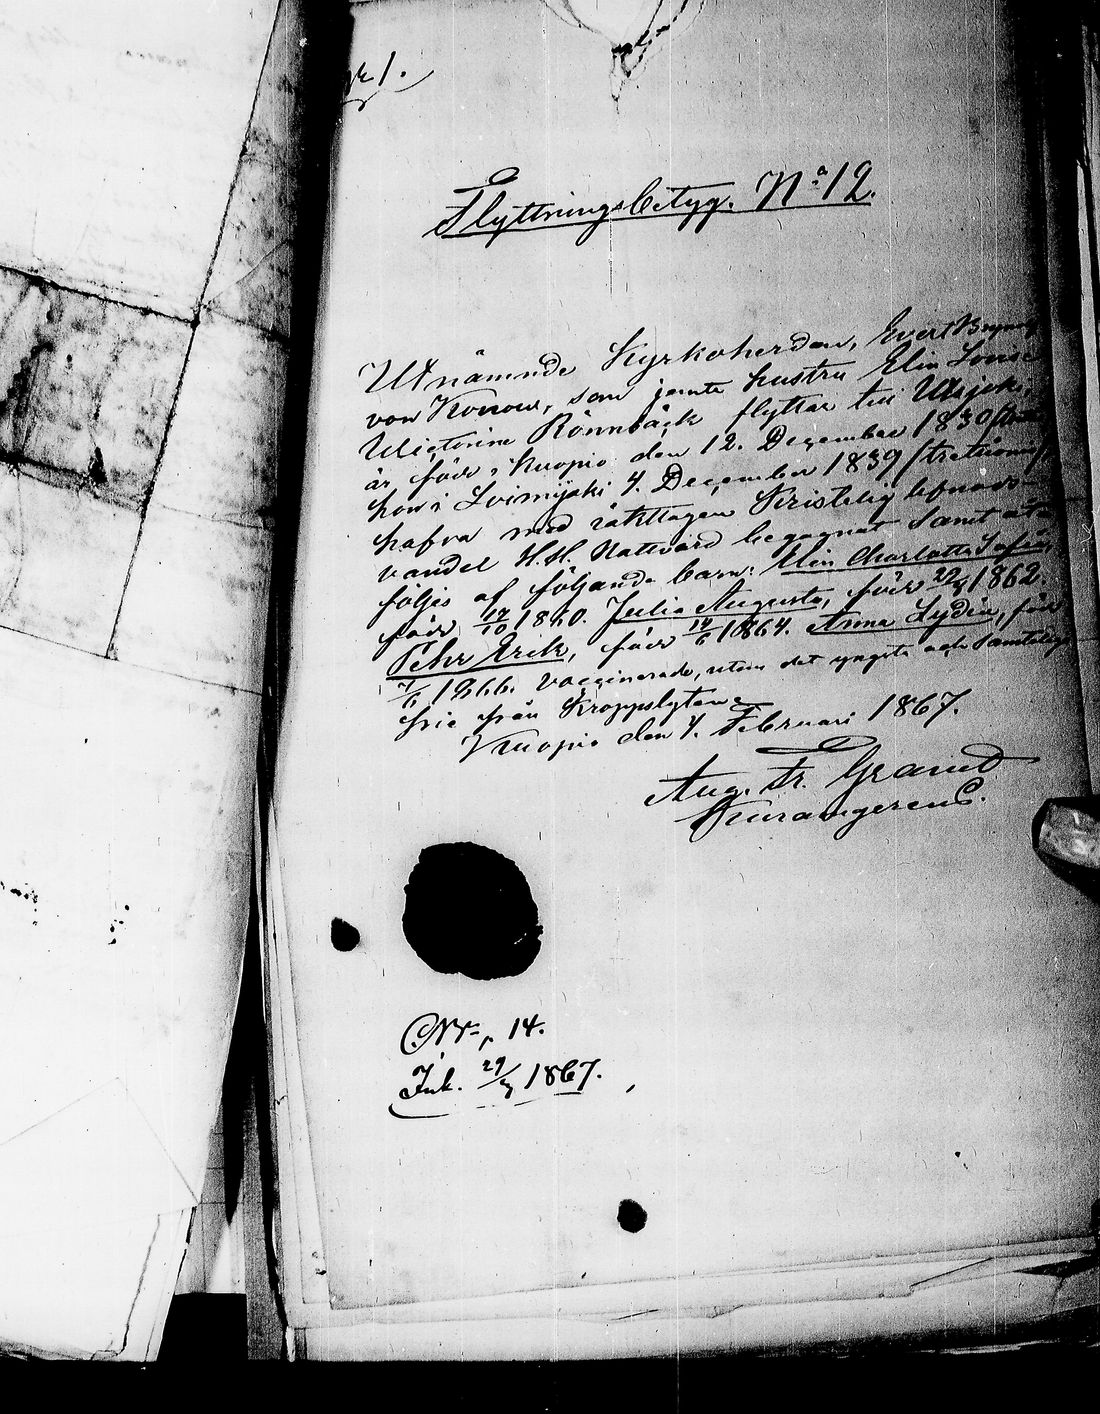 № 1.
Flyttningsbetyg. No 12.
Utnämnde Kyrkoherden, Evert
von Konow, som jemte hustru Elin Lovise
Wictorine Rönnbäck flyttar till Utsjoki,
är född i Kuopio den 12. December 1830
hon i Loimijoki 4. December 1839
hafva med iakttagen Kristelig lefnads-
vandel H.H. Nattvard begagnat samt åt-
följes af följande barn: Elin Charlotta Sofia,
född 17/10 1860. Julia Augusta, född 1862
Pehr Erik, född 14/6 1864. Anna Lydia, född
7/6 1866. vaccinerade, utom det yngsta och samtelige
frie från Kroppslyten.
Kuopio den 4. Februari 1867.
Aug. Fr. Granit
Nr. 14.
Ink. 29/3 1867.